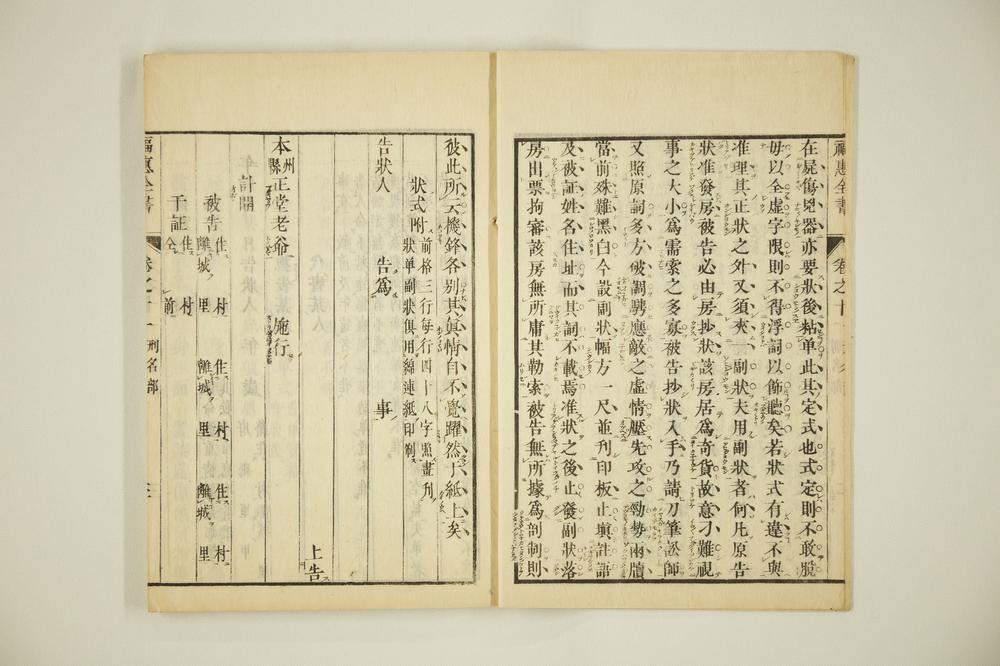 福惠全書 卷之十一 刑名部
在屍傷兇器亦要狀後粘单此其定式也式定則不敢脫
毋以全虛字限則不得浮詞以飾聽矣若狀式有違不與
准理其正狀之外又須夾一副狀夫用副狀者何凡原告
狀准發房被告必由房抄狀該房居為奇貨故意刁難視
事之大小為需索之多寡被告抄狀入手乃請刀筆訟師
又照原詞多方破調騁應敵之虛情壓先攻之勁勢兩牘
當前殊難黑白今設副狀幅方一尺並刊印板止塡註語
及被証姓名住址而其詞不載焉准狀之後止發副狀落
房出票拘審該房無所庸其勒索被告無所據為剖制則
彼此所云機鋒各别其眞情自不覺躍然于紙上矣
狀式附前格三行每行四十八字照畫刋
狀单副狀俱用綿連紙印刷
告狀人 告為 事
上告
本州縣正堂老爺 施行
計開
被告 住 村 離城 里 住 村 離城 里 住 村 離城 里
干証 住仝 村前
福惠全書 卷之十一 刑名部